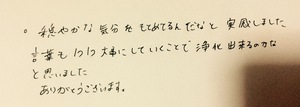 。穏やかな気分をもてめてるんだなと実感しました
言葉も1つ1つ大事にしていくことで浄化出来るのかな
と思いました
ありがとうございます。